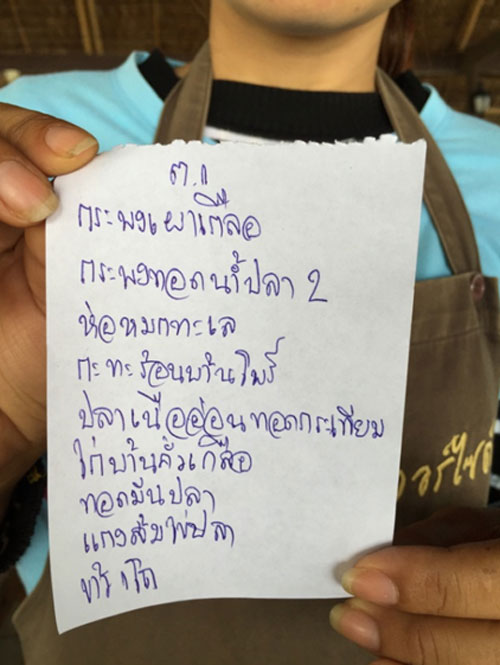 ต.1
กระพงเผาเกลือ
กระพงทอดน้ำปลา 2
ห่อหมกทะเล
กะทะร้อนบ้านโพธิ์
ปลาเนื้ออ่อนทอดกระเทียม
ไก่บ้านคั่วเกลือ
ทอดมันปลา
แกงส้มไข่ปลา